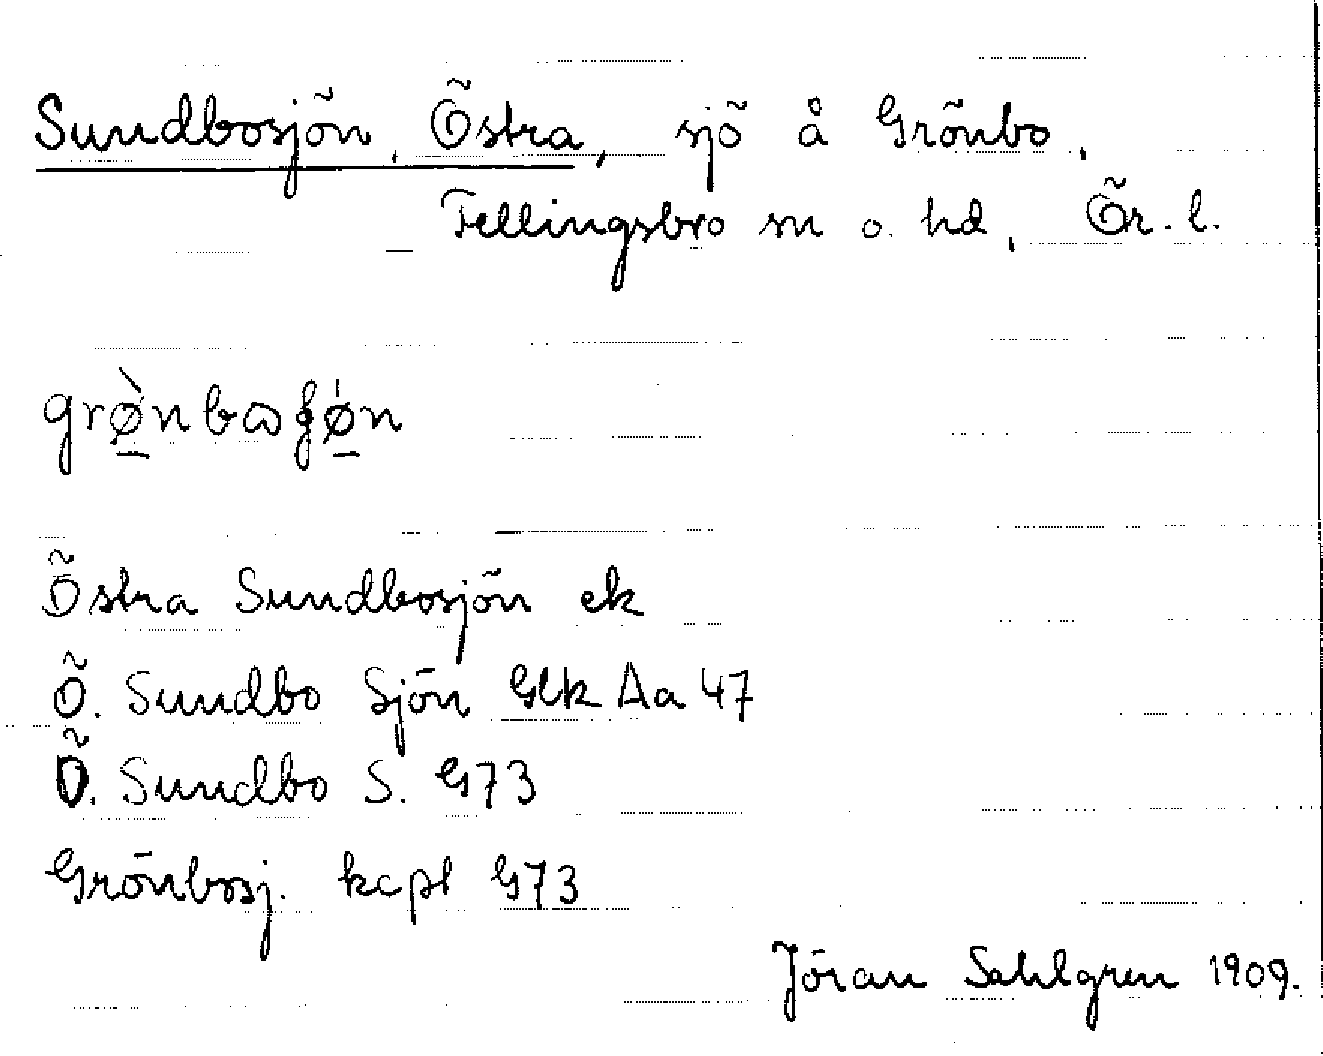 Sundbosjön, Östra, sjö å Grönbo,
Fellingsbro sn o. hd, Ör. l.
grø̀nbɷʃǿn
Östra Sundbosjön ek
Ö. Sundbo Sjön Glk Aa 47
Ö. Sundbo S. G73
Grönbosj. kcpl G73
Jöran Sahlgren 1909.